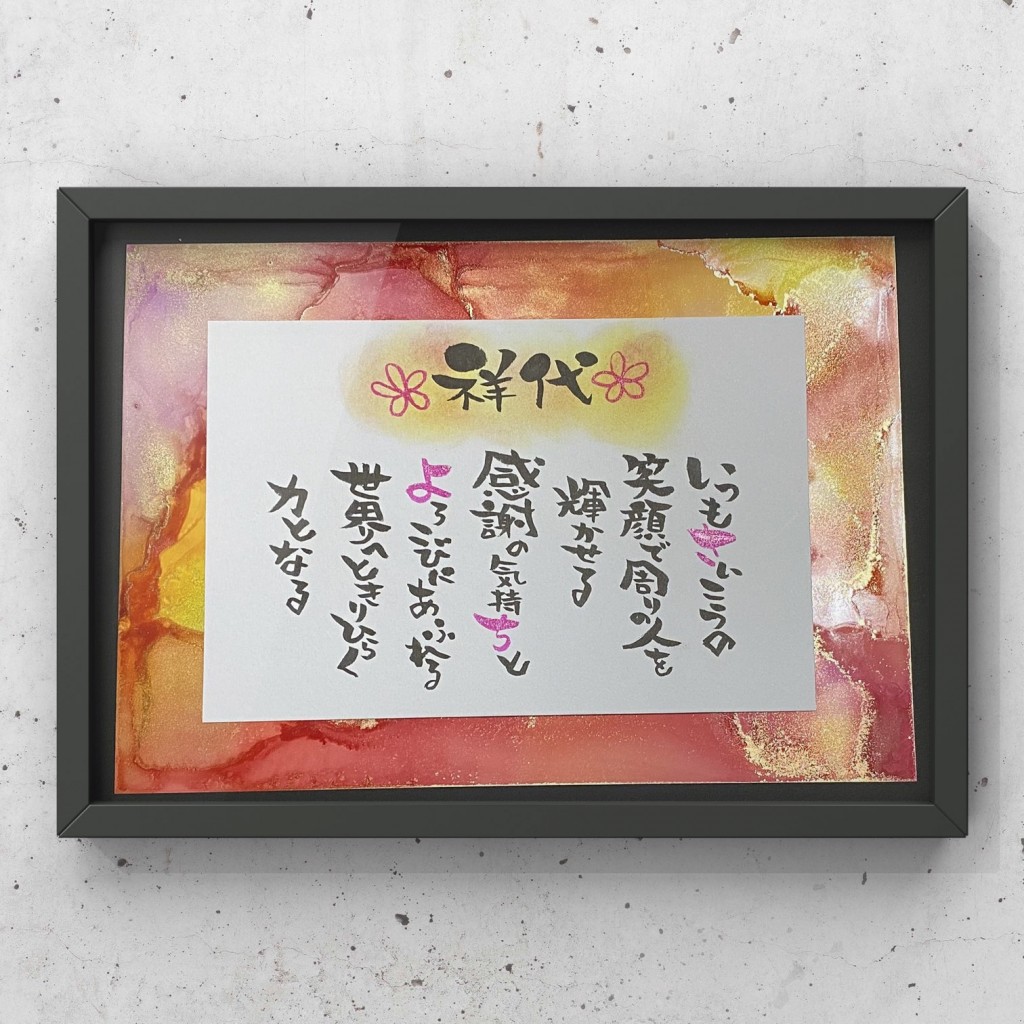 祥代
いつもさいこうの
笑顔で周りの人を
輝かせる
感謝の気持ちと
よろこびにあふれる
世界へときりひらく
力となる